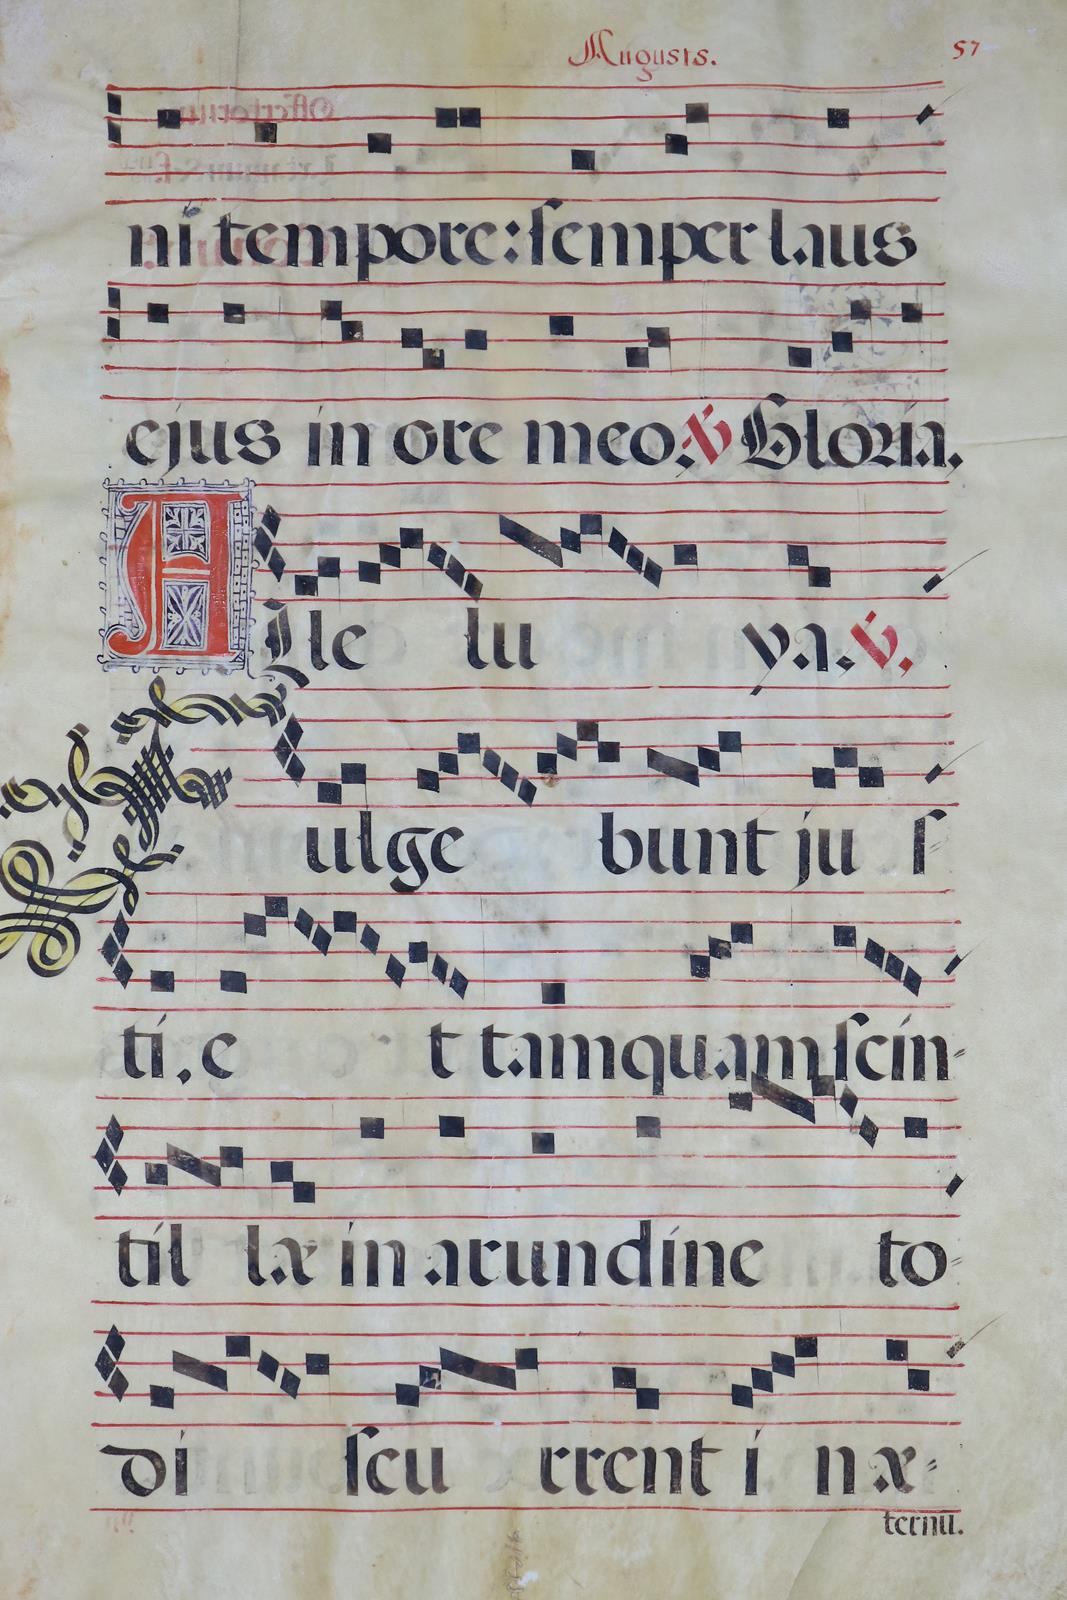 Augusts.
57
ni tempore: semper laus
ejus in ore meo. ℣ Gloria.
Alle lu ya. ℣.
Fulge bunt jus
ti. e t tamquam scin-
til læ in arundine to-
di scu rrent i n æ-
ternū.